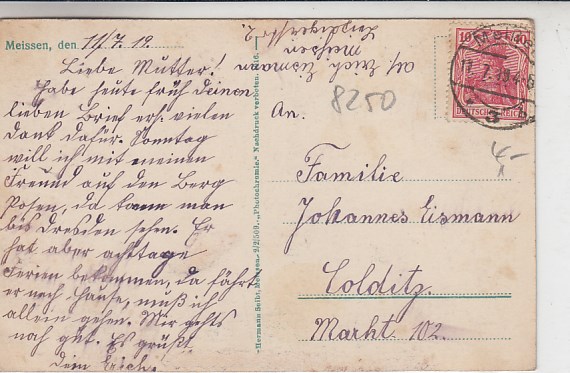 Meissen, den 11/7. 19.
Liebe Mutter!
Habe heute früh deinen
lieben Brief erh. vielen
Dank dafür. Sonntag
will ich mit meinen
Freund auf den Berg
Posen, da kann man
bis Dresden sehn. Er
hat aber achttage
Ferien bekommen, da fährt
er nach Hause, muß ich
allein gehen. Mir gehts
noch gut. Es grüßt
Dein Erich.
Hermann Seibt, Meissen. 2/2/509. „Photochromie." Nachdruck verboten.
Erich Eismann
Meissen
8250
An.
Familie
Johannes Eismann
Colditz.
Markt 102.
10 10
DEUTSCHES REICH
11.7.19.4-5